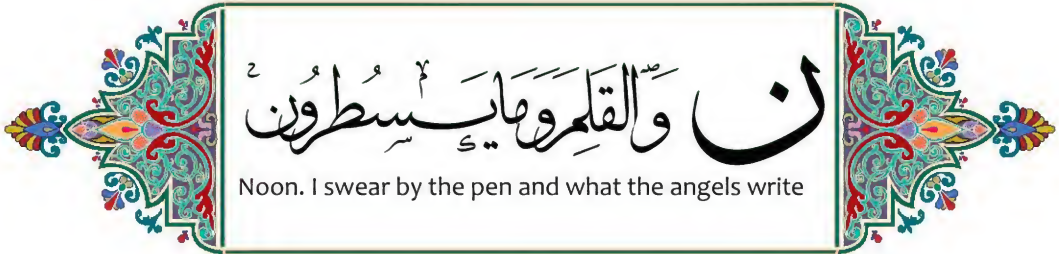 ن وَالْقَلَمِ وَمَا يَسْطُرُونَ
Noon. I swear by the pen and what the angels write